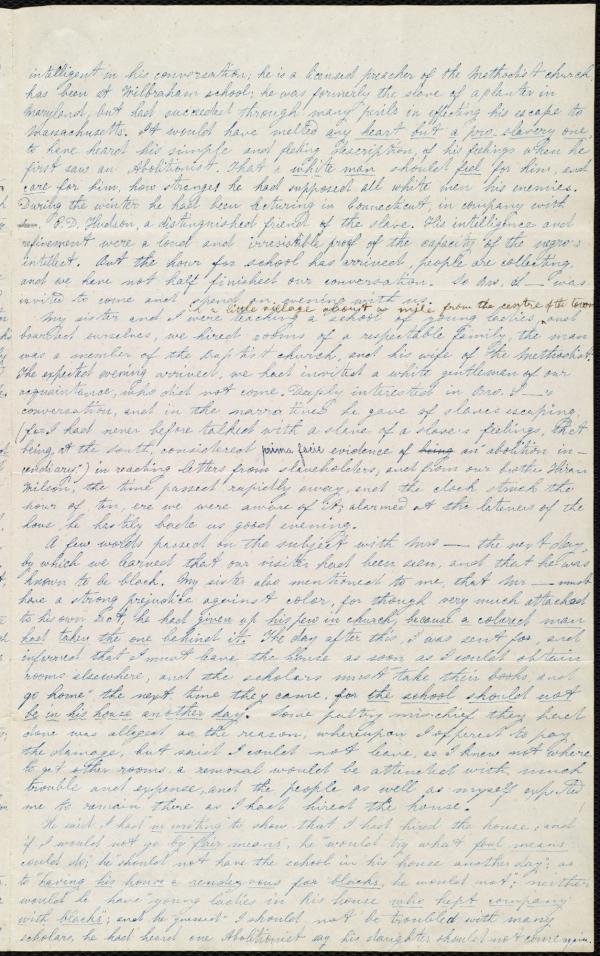 intelligent in his conversation; he is a licensed preacher of the Methodist church,
has been at Wilbraham school; he was formerly the slave of a planter in
Maryland, but had succeeded through many perils in effecting his escape to
Massachusetts. It would have melted any heart but a pro-slavery one,
to have heard his simple and feeling description, of his feelings when he
first saw an Abolitionist. That a white man should feel for him, and
care for him, how strange; he had supposed all white men his enemies.
During the winter he had been lecturing in Connecticut, in company with
E.D. Hudson, a distinguished friend of the slave. His intelligence and
refinement were a loud and irresistible proof of the capacity of the negro's
intellect. But the hour for school has arrived, people are collecting,
and we have not half finished our conversation. So Bro. J— was
invited to come and spend an evening with us.
in a little village about a mile from the centre of the town
My sister and I were teaching a school of young ladies, and
boarded ourselves, we hired rooms of a respectable family, the man
was a member of the Baptist church, and his wife of the Methodist.
The expected evening arrived, we had invited a white gentleman of our
acquaintance, who did not come. Deeply interested in Bro. J—'s
conversation, and in the narratives he gave of slaves escaping,
(for I had never before talked with a slave of a slave's feelings, that
being, at the south, considered prima facie evidence of being an "abolition in-
cendiary") in reading letters from slaveholders, and from our brother Hiram
Wilson, the time passed rapidly away, and the clock struck the
hour of ten, ere we were aware of it; alarmed at the lateness of the
hour, he hastily bade us good evening.
A few words passed on the subject with Mrs — the next day,
by which we learned that our visiter had been seen, and that he was
known to be black. My sister also mentioned to me, that Mr — must
have a strong prejudice against color, for though very much attached
to his own sect, he had given up his pew in church, because a colored man
had taken the one behind it. The day after this, I was sent for, and
informed that I must leave the house as soon as I could obtain
rooms elsewhere, and the scholars must take their books, and
go home" the next time they came, for the school should not
be in his house another day. Some paltry mischief they had
done was alleged as the reason, whereupon I offered to pay
the damage, but said I could not leave, as I knew not where
to get other rooms, a removal would be attended with much
trouble and expense, and the people as well as myself expected
me to remain there as I had hired the house.
He said I had "no writing" to show that I had hired the house, and
if I would not go by fair means, he would try what foul means
could do; he should not have the school in his house another day; as
to "having his house a rendezvous for blacks, he would not"; neither
would he have "young ladies in his house who kept company
with blacks"; and he "guessed" I should not be troubled with many
scholars, he had heard one Abolitionist say his daughter should not come again.